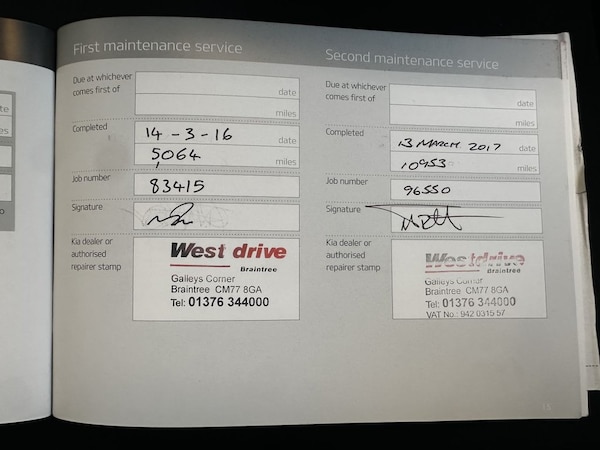 First maintenance service
Due at whichever
comes first of
date
miles
Completed
14-3-16
date
5,064
miles
Job number
83415
Signature
Kia dealer or
authorised
repairer stamp
West drive
Braintree
Galleys Corner
Braintree CM77 8GA
Tel: 01376 344000
Second maintenance service
Due at whichever
comes first of
date
miles
Completed
13 MARCH 2017
date
10953
miles
Job number
96550
Signature
Kia dealer or
authorised
repairer stamp
Westdrive
Braintree
Galleys Corner
Braintree CM77 8GA
Tel: 01376 344000
VAT No.: 942 0315 57